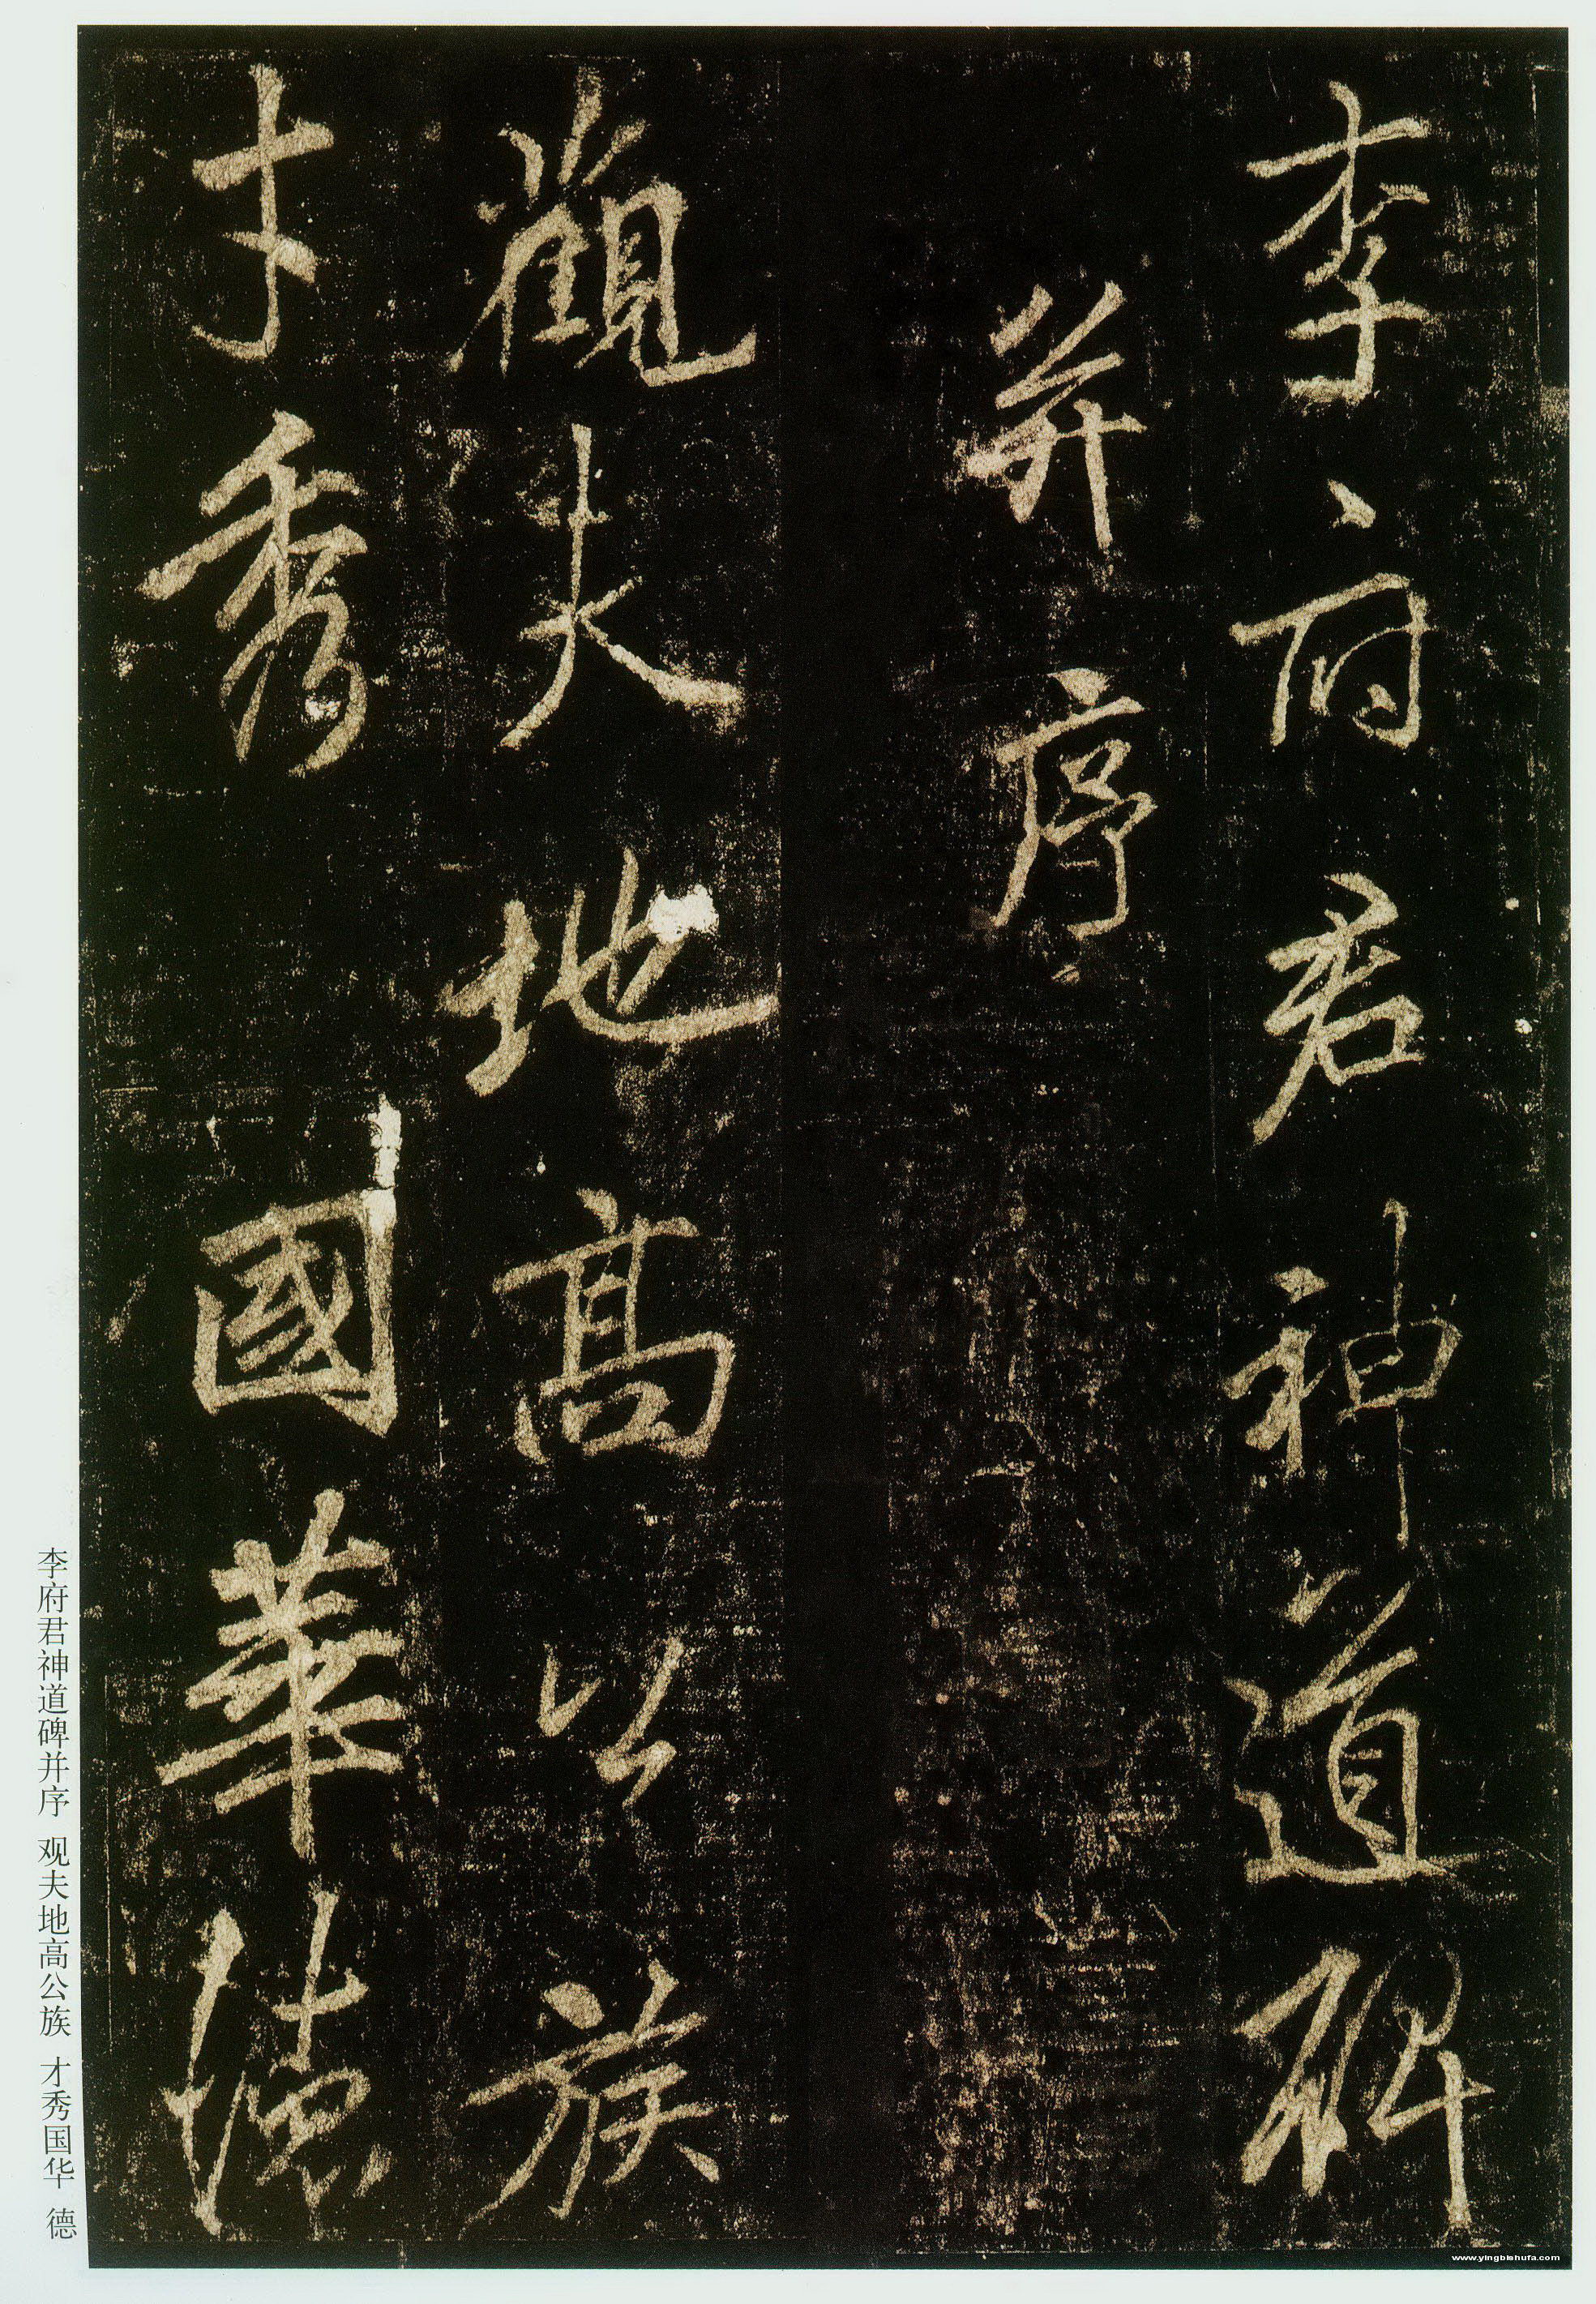 李府君神道碑
并序
觀夫地高公族
才秀國華德
李府君神道碑并序 观夫地高公族 才秀国华 德
www.yingbishufa.com